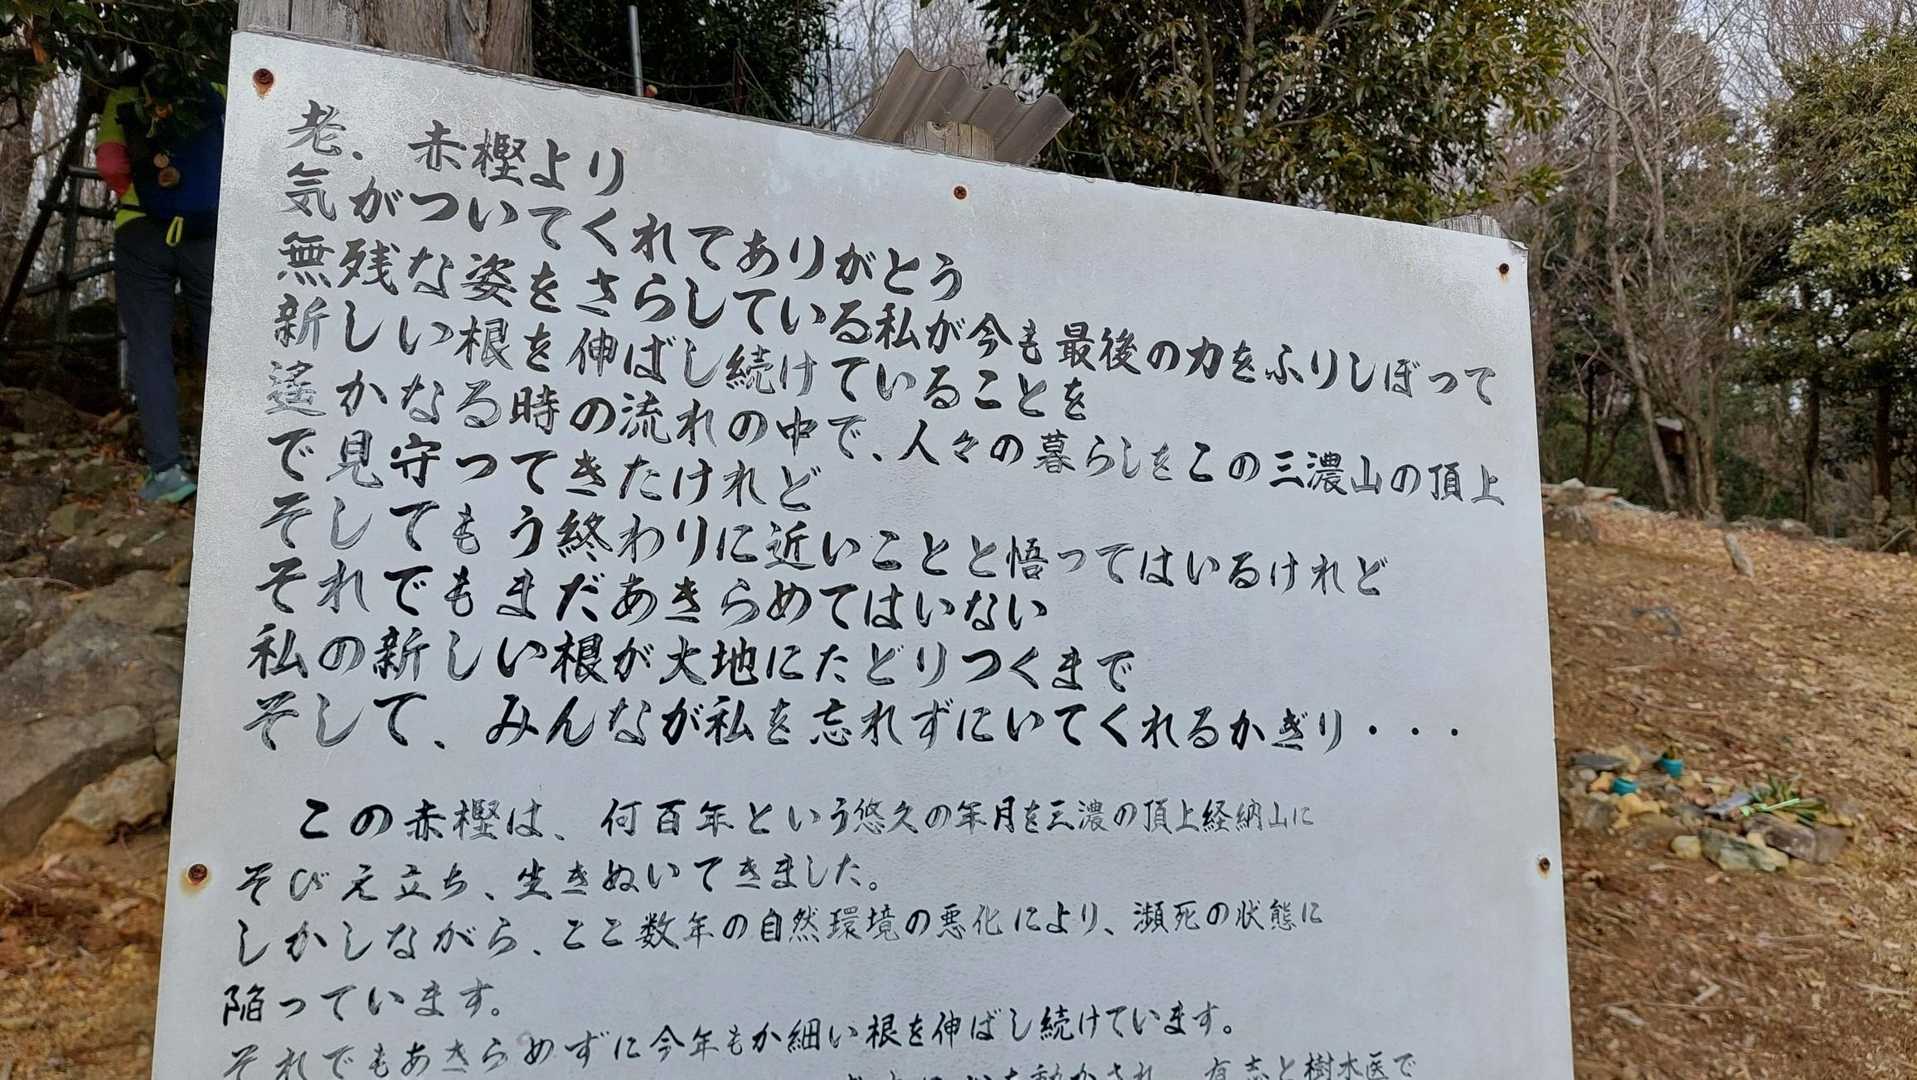 老、赤樫より
気がついてくれてありがとう
無残な姿をさらしている私が今も最後の力をふりしぼって
新しい根を伸ばし続けていることを
遙かなる時の流れの中で、人々の暮らしをこの三濃山の頂上
で見守ってきたけれど
そしてもう終わりに近いことと悟ってはいるけれど
それでもまだあきらめてはいない
私の新しい根が大地にたどりつくまで
そして、みんなが私を忘れずにいてくれるかぎり・・・
この赤樫は、何百年という悠久の年月を三濃の頂上経納山に
そびえ立ち、生きぬいてきました。
しかしながら、ここ数年の自然環境の悪化により、瀕死の状態に
陥っています。
それでもあきらめずに今年もか細い根を伸ばし続けています。
動かされ、有志と樹木医で